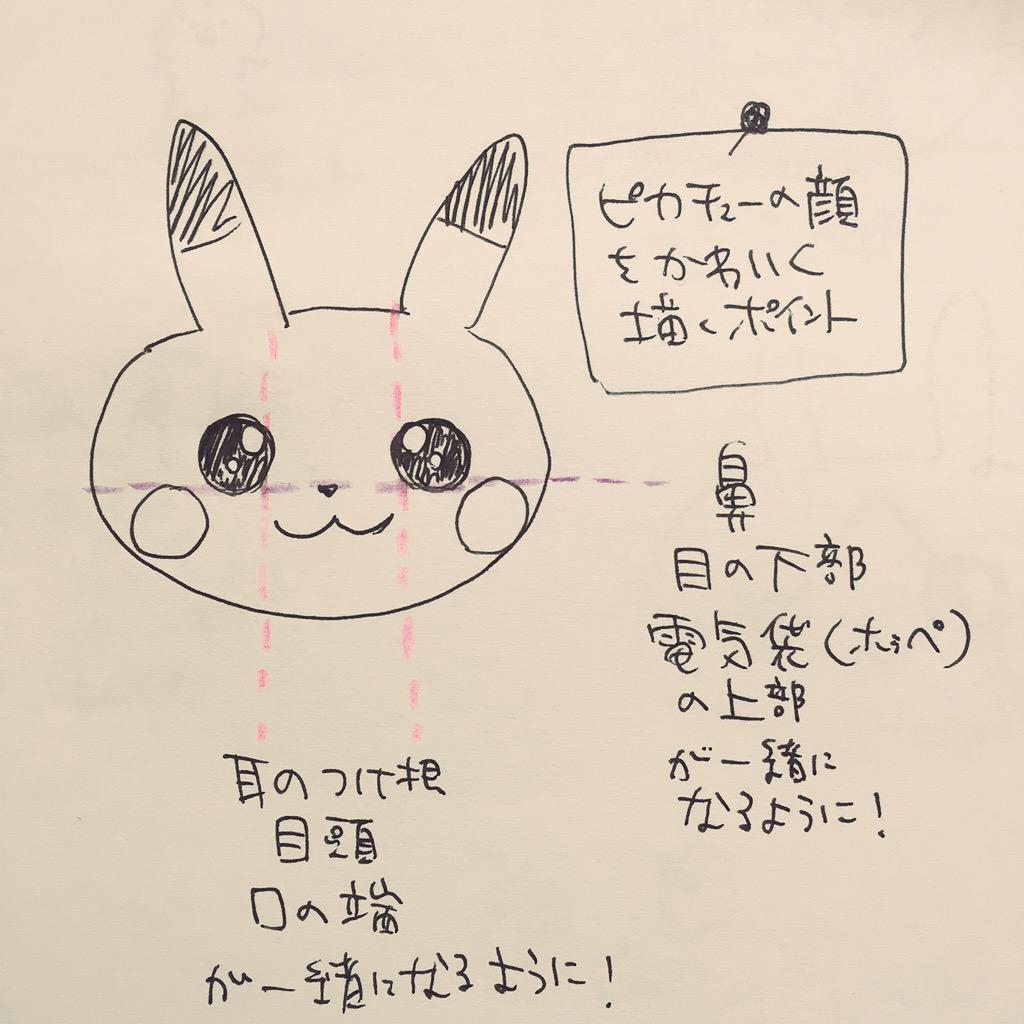 ピカチューの顔
をかわいく
描くポイント
鼻
目の下部
電気袋(ホッペ)
の上部
が一緒に
なるように!
耳のつけ根
目頭
口の端
が一緒になるように!